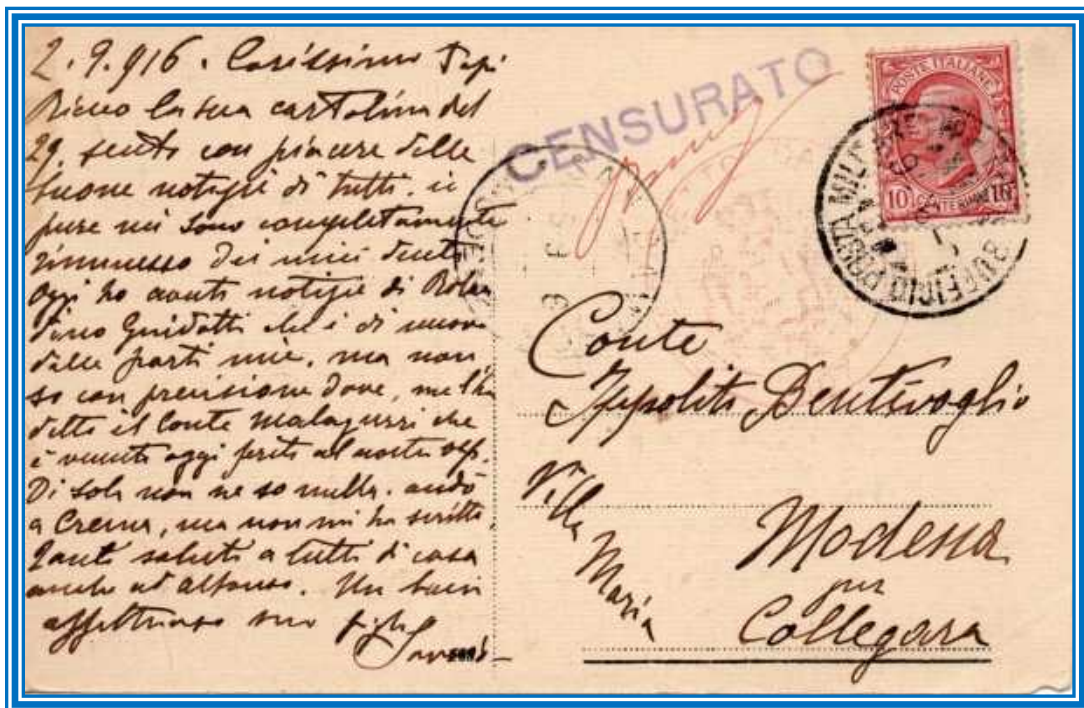 2.9.916. Carissimo Papi
Ricevo la sua cartolina del
29. sento con piacere delle
buone notizie di tutti. io
pure mi sono completamente
rimmesso dei miei denti
Oggi ho avuti notizie di Rolan
dino Guidotti che è di nuovo
dalle parti mie, ma non
so con precisione dove, me l'ha
detto il Conte Malaguzzi che
è venuto oggi ferito al nostro osp.
Di Sola non ne so nulla. andò
a Crema, ma non mi ha scritto.
Tanti saluti a tutti di casa
anche ad Alfonso. Un bacio
affettuoso suo figlio
CENSURATO
POSTE ITALIANE
10 CENTESIMI 10
UFFICIO POSTA MILITARE
Conte
Ippolito Bentivoglio
Villa Maria
Modena
per
Collegara